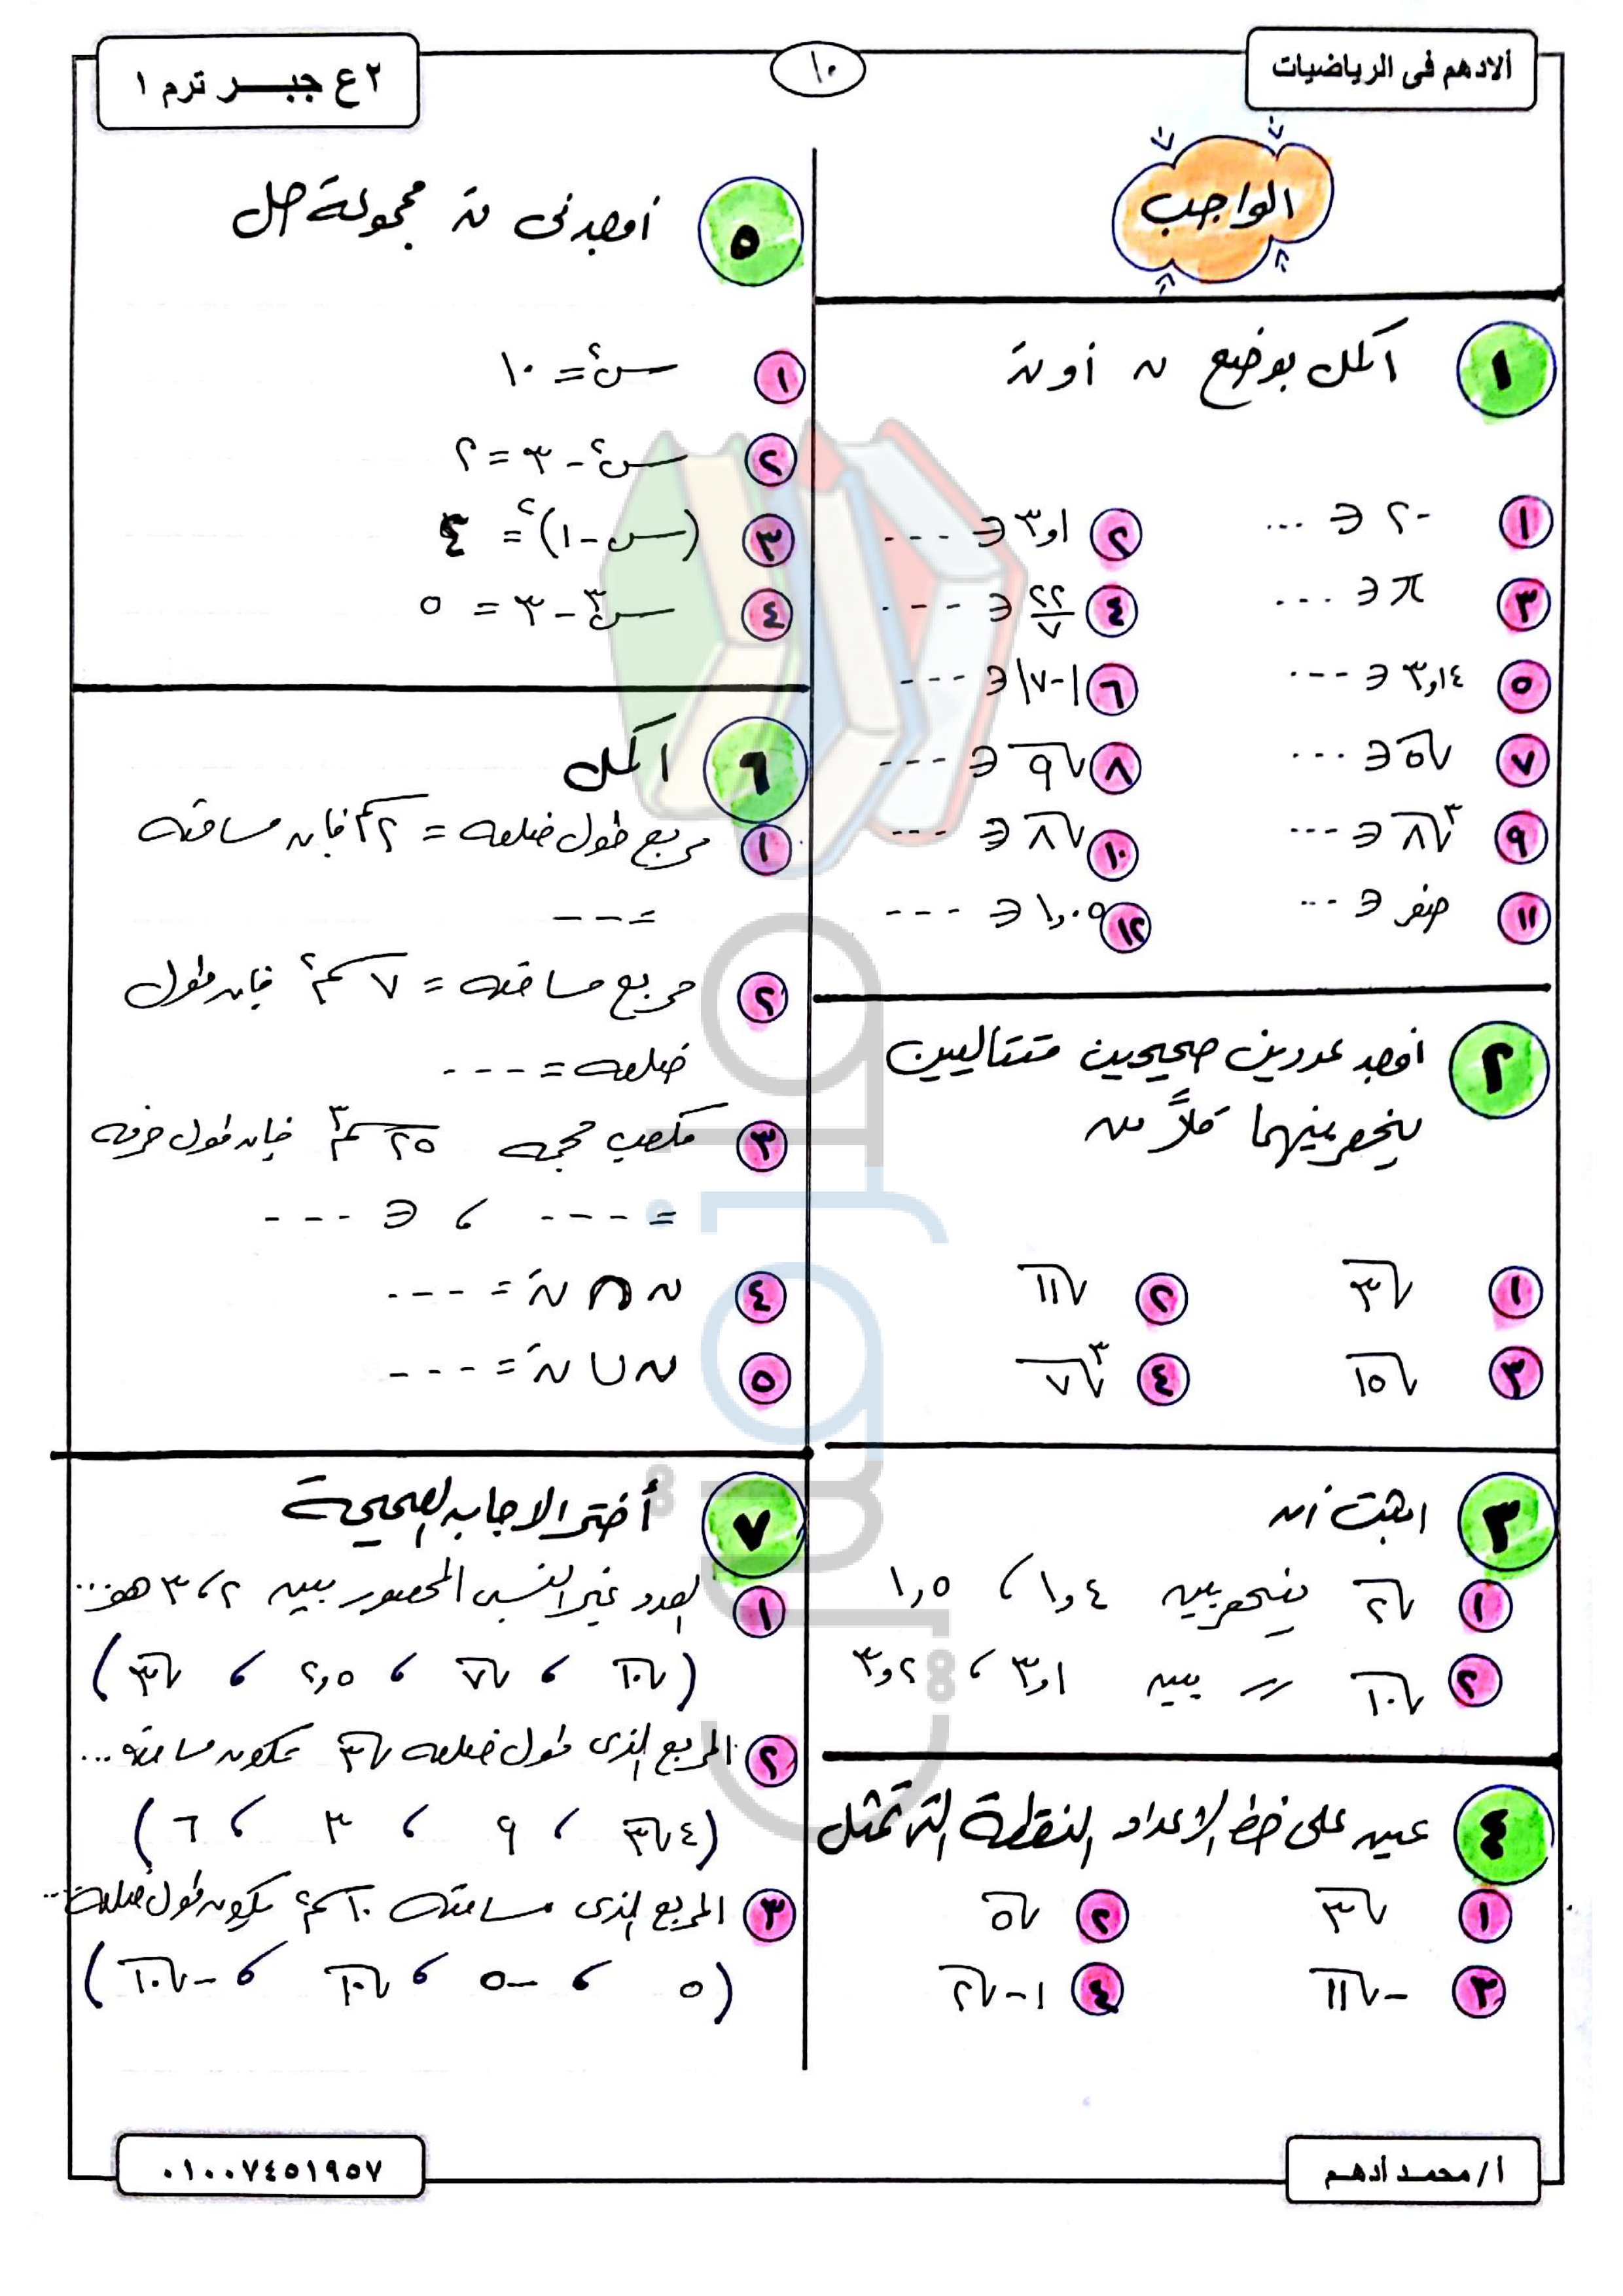 ألادهم فى الرياضيات
١٠
٢ ع جبـــر ترم ١
الواجب
١ اكمل بوضع ن أو نَ
١ -٢ ∈ ...
٢ ٣,١ ∈ ---
٣ π ∈ ...
٤ ٢٢/٧ ∈ ---
٥ ٣,١٤ ∈ ---
٦ |-٧| ∈ ---
٧ √٥ ∈ ...
٨ √٩ ∈ ---
٩ ∛٨ ∈ ---
١٠ √٨ ∈ ---
١١ صفر ∈ ...
١٢ ١,٠٥ ∈ ---
٢ أوجد عددين صحيحين متتاليين
ينحصر بينهما كلاً من
١ √٣
٢ √١١
٣ √١٥
٤ ∛٧
٣ اثبت أن
١ √٢ ينحصر بين ١,٤ ، ١,٥
٢ √١٠ 〃 بين ٣,١ ، ٣,٢
٤ عين على خط الاعداد النقطة التى تمثل
١ √٣
٢ √٥
٣ -√١١
٤ ١-√٢
٥ أوجد فى نَ مجموعة حل
١ س٢ = ١٠
٢ س٢ - ٣ = ٢
٣ (س-١)٢ = ٤
٤ س٣ - ٣ = ٥
٦ اكمل
١ مربع طول ضلعه = √٢ سم فإن مساحته
= ---
٢ مربع مساحته = ٧ سم٢ فإن طول
ضلعه = ---
٣ مكعب حجمه ٢٥ سم٣ فإن طول حرفه
= --- ، ∈ ---
٤ ن ∩ نَ = ---
٥ ن ∪ نَ = ---
٧ أختر الاجابه الصحيحة
١ العدد غير النسبى المحصور بين ٢ ، ٣ هو ...
(√١٠ ، √٧ ، ٢,٥ ، √٣)
٢ المربع الذى طول ضلعه √٣ تكون مساحته ...
(٤√٣ ، ٩ ، ٣ ، ٦)
٣ المربع الذى مساحته ١٠ سم٢ يكون طول ضلعه ...
(٥ ، -٥ ، √١٠ ، -√١٠)
أ/ محمد أدهم
٠١٠٠٧٤٥١٩٥٧